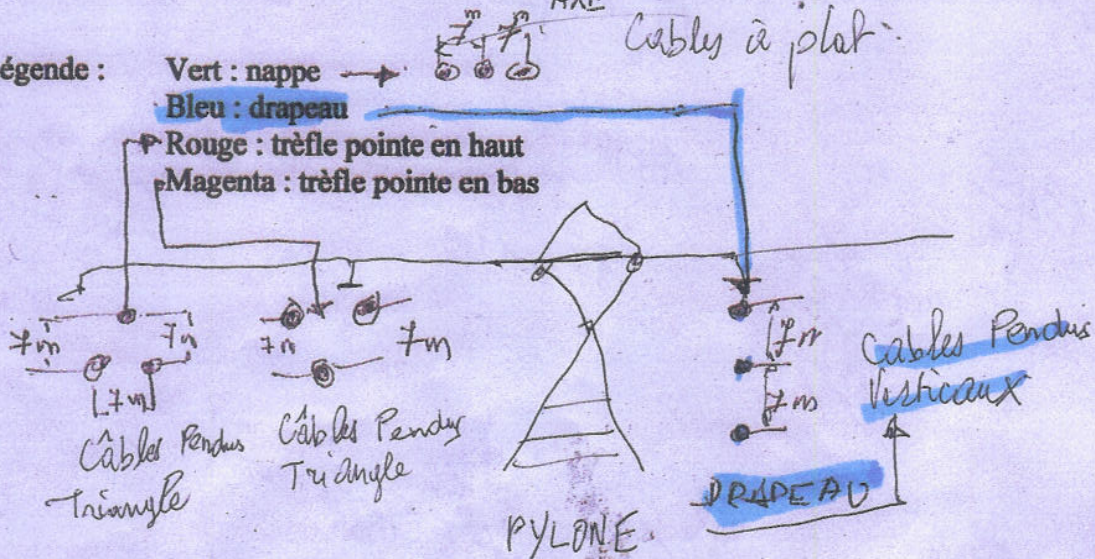 AXE
7m 7m
Cables à plat
égende : Vert : nappe
Bleu : drapeau
Rouge : trèfle pointe en haut
Magenta : trèfle pointe en bas
7m 7m
7m 7m
7m
7m
7m
Câbles Pendus
Triangle
Câbles Pendus
Triangle
Cables Pendus
Verticaux
DRAPEAU
PYLONE